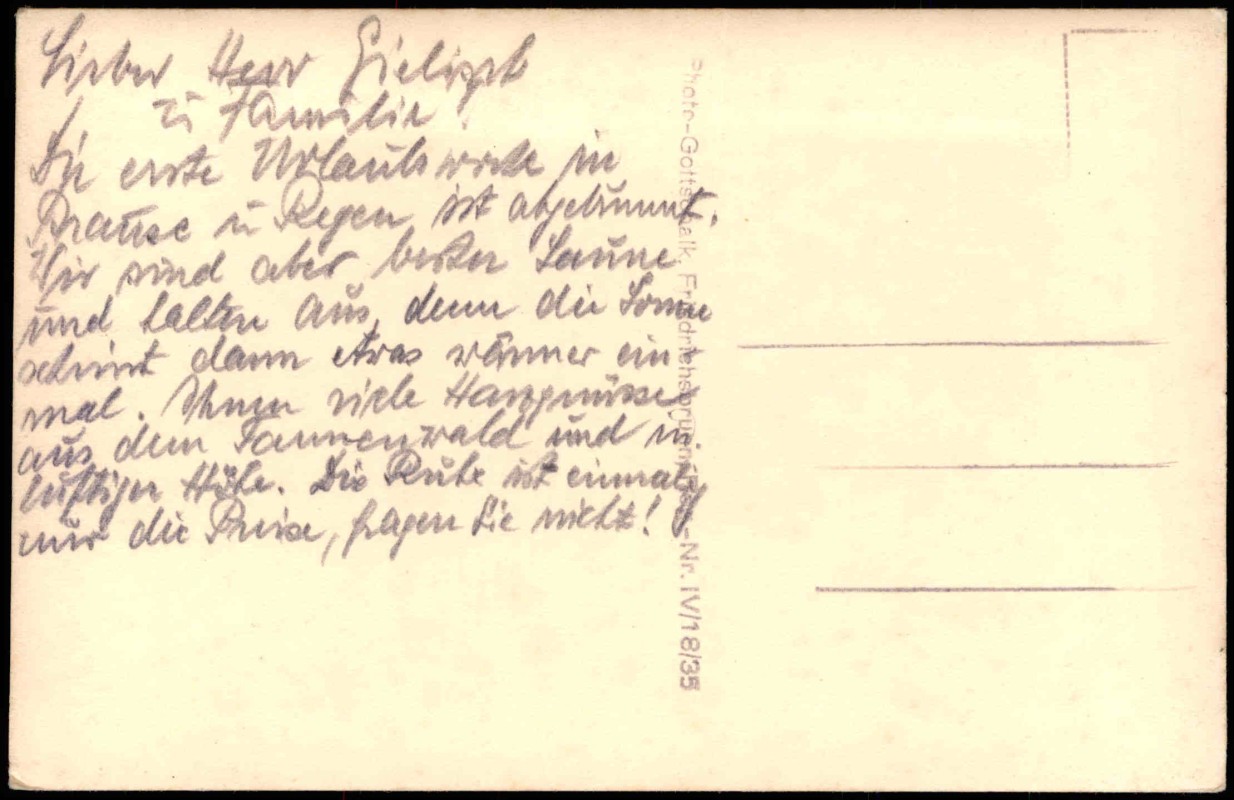 Lieber Herr
u Familie!
Die erste Urlaubswoche in
Brause u Regen ist abgebrummt.
Wir sind aber bester Laune
und halten aus, denn die Sonne
scheint dann etwas wärmer ein-
mal. Ihnen viele Harzgrüsse
aus dem Tannenwald und in
luftiger Höhe. Die Ruhe ist einmalig
nur die Preise, fragen Sie nicht!
Photo-Gottschalk, Friedrichsbrunn Nr. IV/18/35